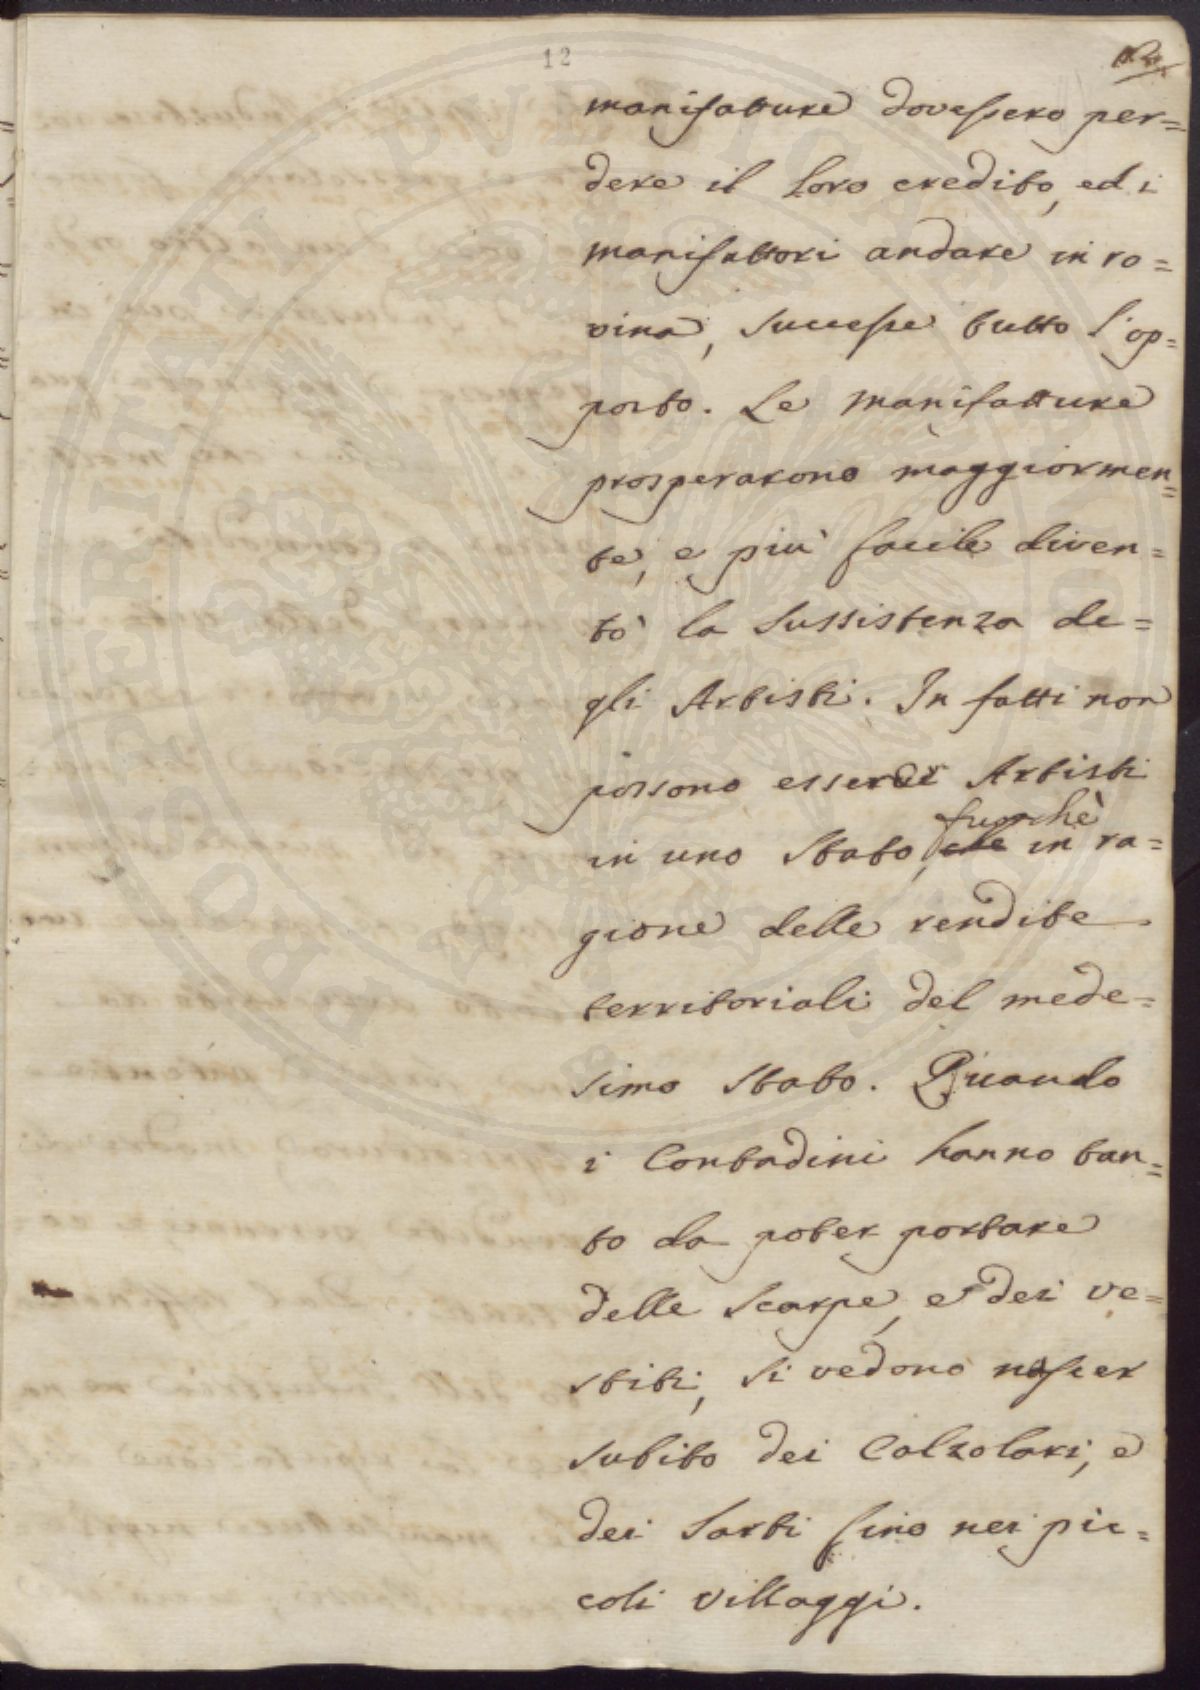 12
manifatture dovessero per=
dere il loro credito, ed i
manifattori andare in ro=
vina, successe tutto l'op=
posto. Le manifatture
prosperarono maggiormen=
te, e più facile diven=
tò la sussistenza de=
gli Artisti. In fatti non
possono esser Artisti
fuorchè
in uno Stato, che in ra=
gione delle rendite
territoriali del mede=
simo Stato. Quando
i Contadini hanno tan=
to da poter portare
delle Scarpe, e dei ve=
stiti, si vedono nascer
subito dei Calzolari, e
dei Sarti fino nei pic=
coli villaggi.
POSTERITATI PVBLICAE PVBLICI